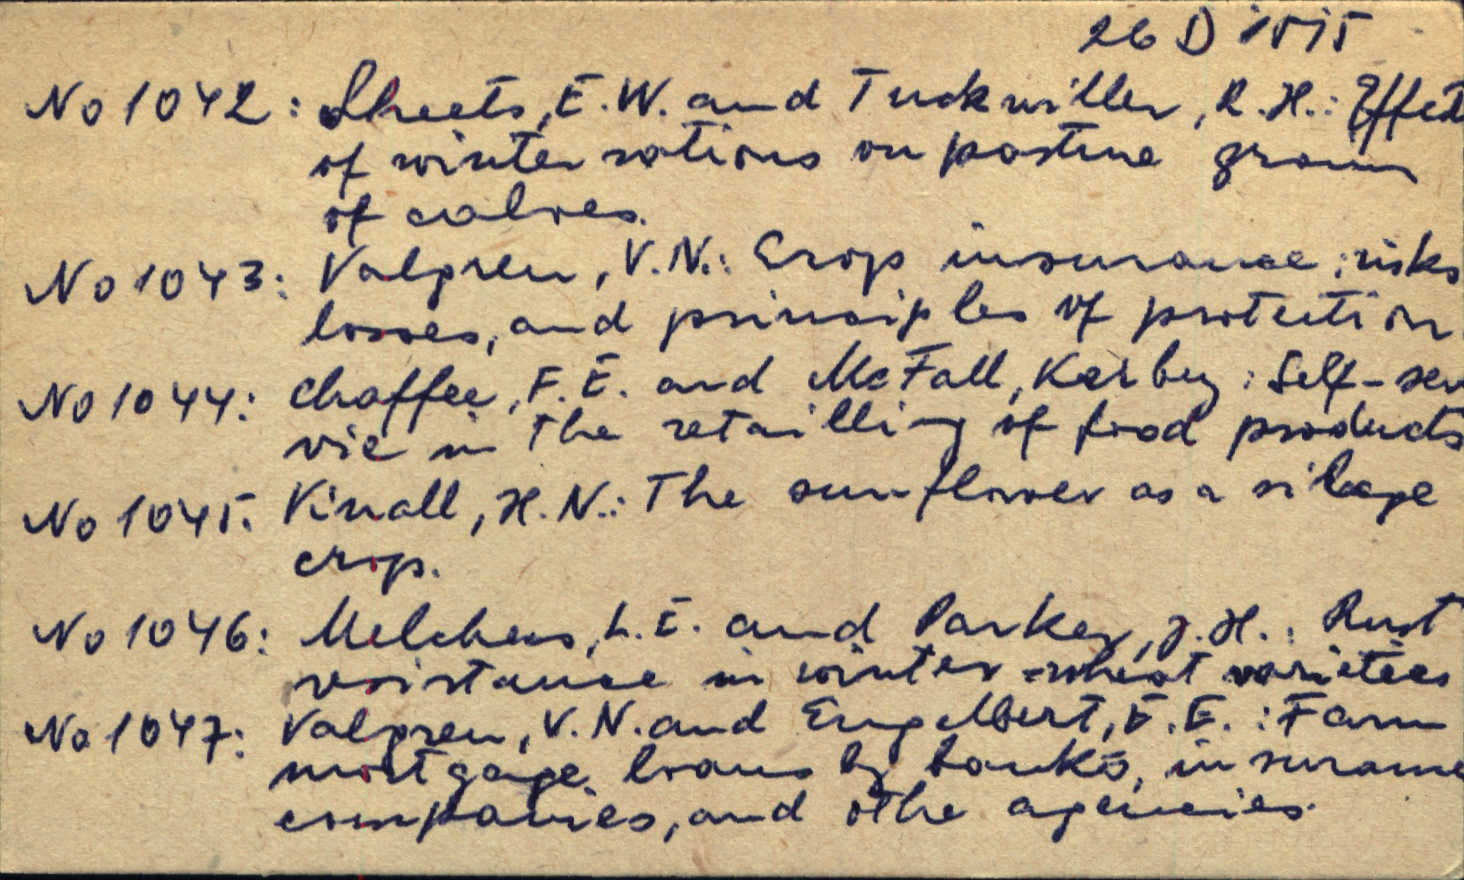 26 D 1515
No 1042: Sheets, E. W. and Tuckwiller, R. H.: Effect
of winter rations on pasture grains
of calves.
No 1043: Valgren, V. N.: Crop insurance: risks
losses, and principles of protection.
No 1044: Chaffee, F. E. and McFall, Kerbey: Self-ser
vice in the retailling of food products
No 1045: Vinall, H. N.: The sunflower as a silage
crop.
No 1046: Melchers, L. E. and Parker, J. H.: Rust
resistance in winter-wheat varieties
No 1047: Valgren, V. N. and Engelbert, E. E.: Farm
mortgage loans by banks, insurance
companies, and othe agencies.